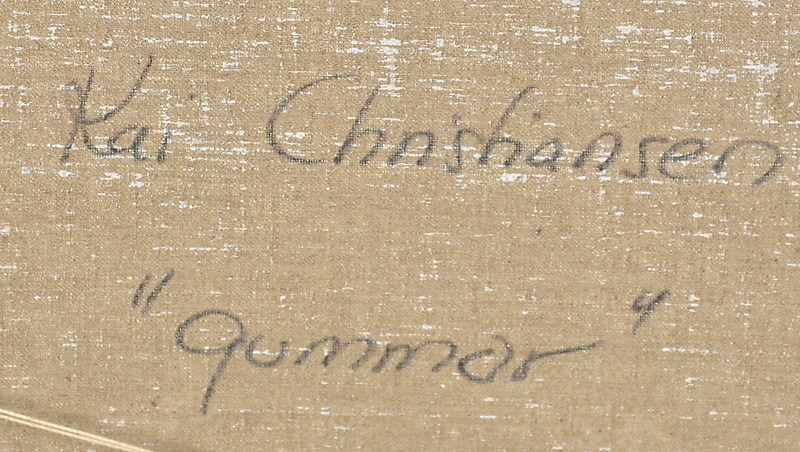 Kai Christiansen
"qummor"